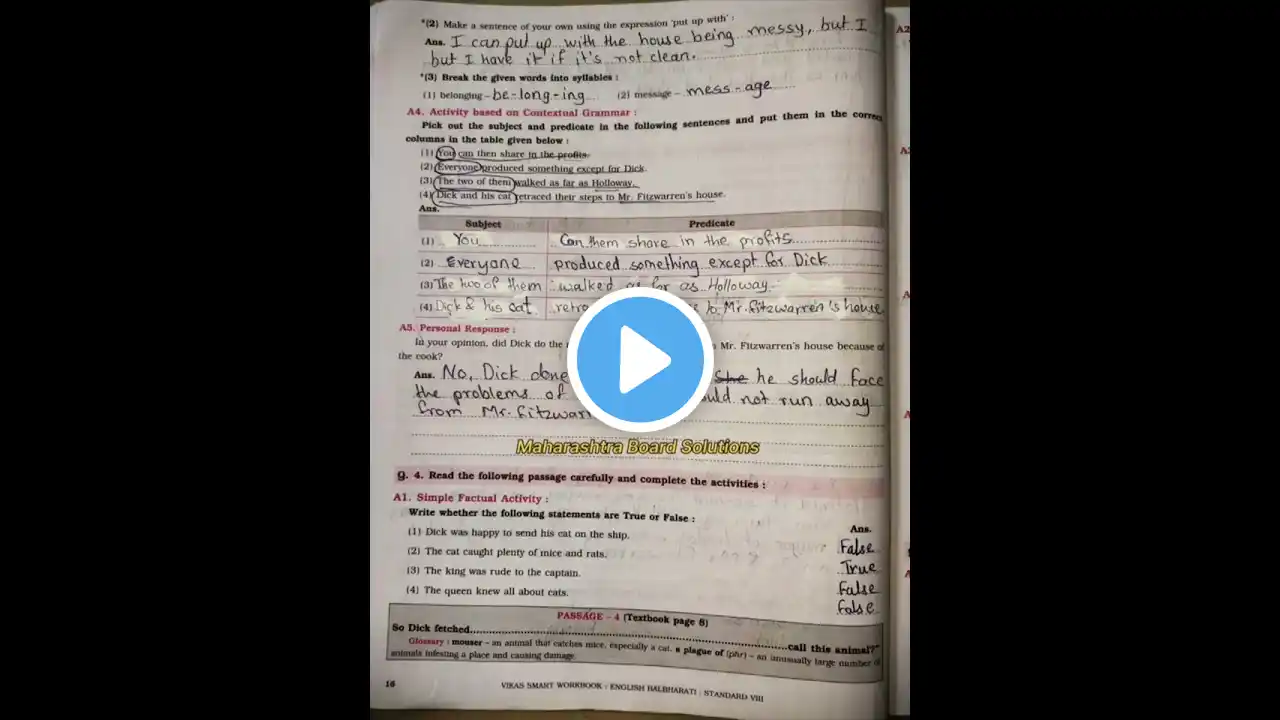 *(2) Make a sentence of your own using the expression 'put up with' :
Ans. I can put up with the house being messy, but I
but I have it if it's not clean.
*(3) Break the given words into syllables :
(1) belonging – be-long-ing (2) message – mess-age
A4. Activity based on Contextual Grammar :
Pick out the subject and predicate in the following sentences and put them in the correct
columns in the table given below :
(1) You can then share in the profits.
(2) Everyone produced something except for Dick.
(3) The two of them walked as far as Holloway.
(4) Dick and his cat retraced their steps to Mr. Fitzwarren's house.
Ans.
Subject Predicate
(1) You Can them share in the profits
(2) Everyone produced something except for Dick
(3) The two of them walked as far as Holloway
(4) Dick & his cat retra to Mr. Fitzwarren's house
A5. Personal Response :
In your opinion, did Dick do the Mr. Fitzwarren's house because of
the cook?
Ans. No, Dick done She he should face
the problems of not run away
from Mr. Fitzwarr
Maharashtra Board Solutions
Q. 4. Read the following passage carefully and complete the activities :
A1. Simple Factual Activity :
Write whether the following statements are True or False :
Ans.
(1) Dick was happy to send his cat on the ship. False
(2) The cat caught plenty of mice and rats. True
(3) The king was rude to the captain. False
(4) The queen knew all about cats. False
PASSAGE – 4 (Textbook page 8)
So Dick fetched call this animal?"
Glossary : mouser – an animal that catches mice, especially a cat, a plague of (phr) – an unusually large number of
animals infesting a place and causing damage.
16 VIKAS SMART WORKBOOK : ENGLISH BALBHARATI : STANDARD VIII